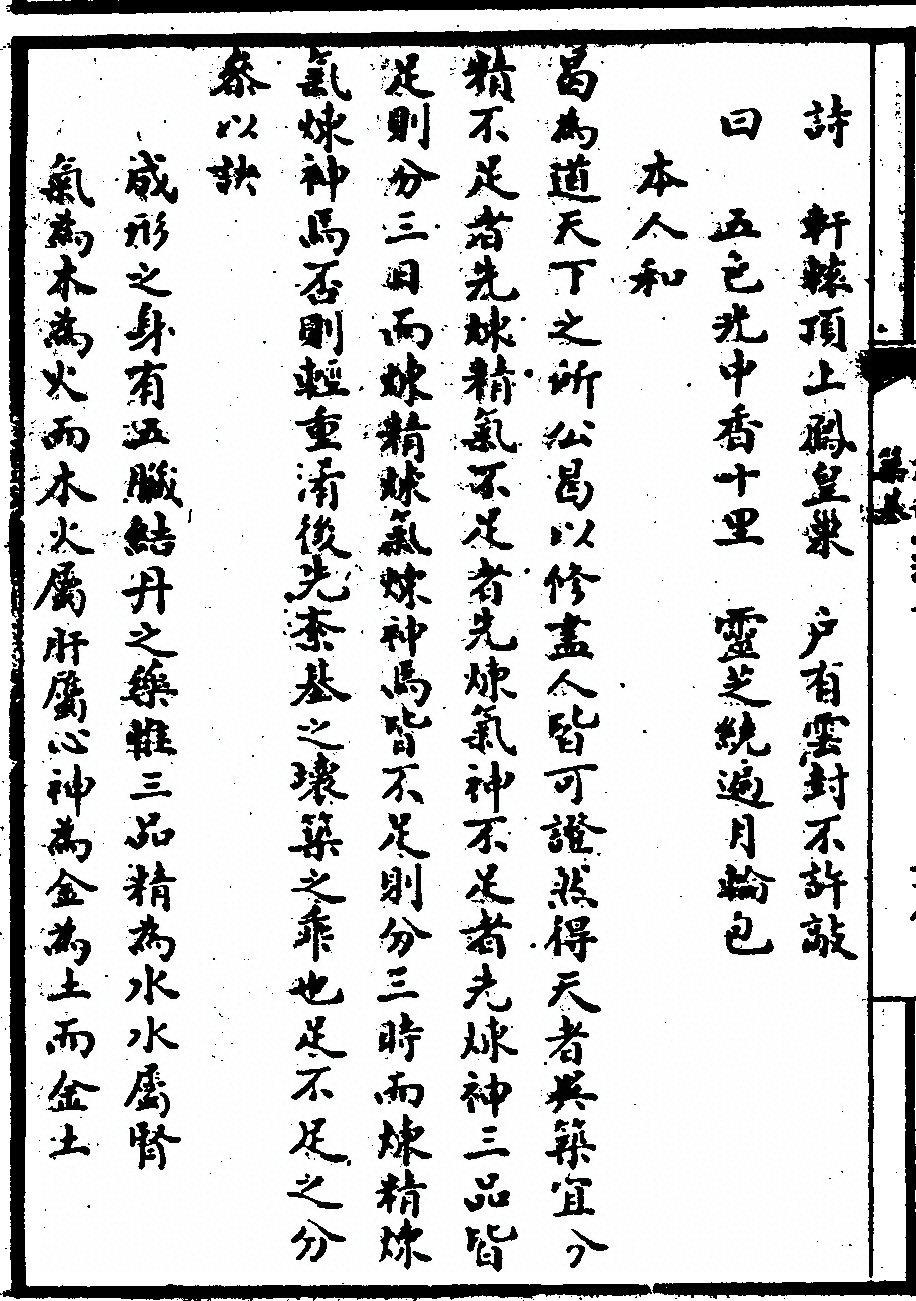 詩　軒轅頂上鳳皇巢　戶有雲封不許敲
曰　五色光中香十里　靈芝繞遍月輪包
本人和
曷為道天下之所公曷以修盡人皆可證然得天者異築宜分
精不足者先煉精氣不足者先煉氣神不足者先煉神三品皆
足則分三日而煉精煉氣煉神焉皆不足則分三時而煉精煉
氣煉神焉否則輕重淆後先紊基之壞築之乖也足不足之分
參以訣
成形之身有五臟結丹之藥惟三品精為水水屬腎
氣為木為火而木火屬肝屬心神為金為土而金土
築基